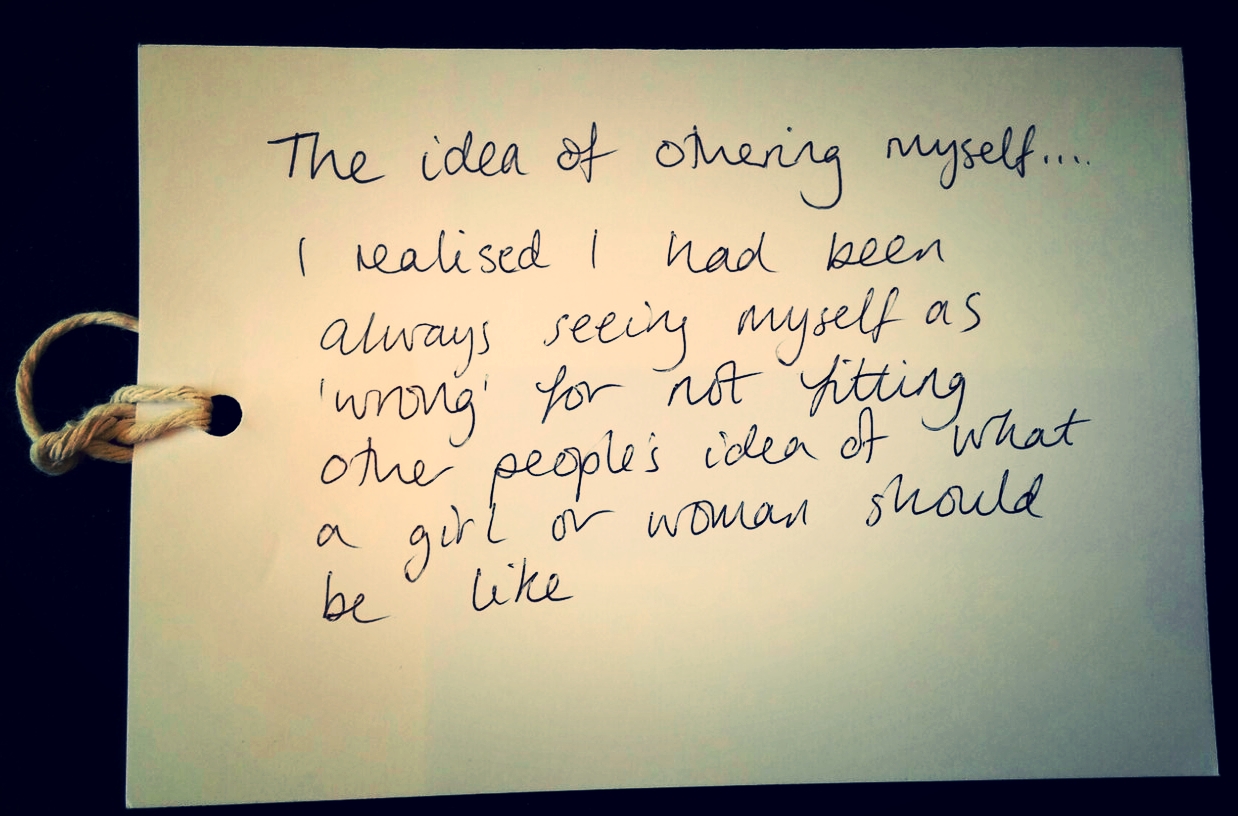 The idea of othering myself....
I realised I had been
always seeing myself as
'wrong' for not fitting
other people's idea of what
a girl or woman should
be like